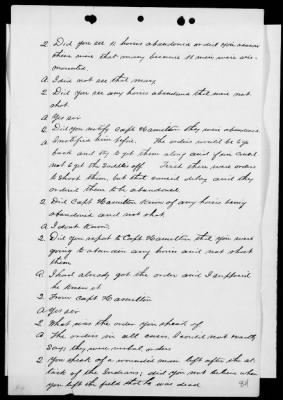 Q Did you see 11 horses abandoned or did you assume
there were that many because 11 men were dis-
mounted.
A I did not see that many.
Q Did you see any horses abandoned that were not
shot.
A Yes sir
Q Did you notify Capt Hamilton they were abandoned.
A I notified him before. The orders would be to go
back and try to get them along and if we could
not to get the saddles off. First there were orders
to shoot them, but that caused delay and they
ordered them to be abandoned.
Q Did Capt Hamilton know of any horses being
abandoned and not shot.
A I dont know.
Q Did you report to Capt Hamilton that you were
going to abandon any horses and not shoot
them
A I had already got the order and I supposed
he knew it
Q From Capt Hamilton
A Yes sir
Q What was the order you speak of
A The orders in all cases, I could not exactly
say; they were verbal orders
Q You speak of a wounded man left after the at-
tack of the Indians; did you not believe when
you left the field that he was dead